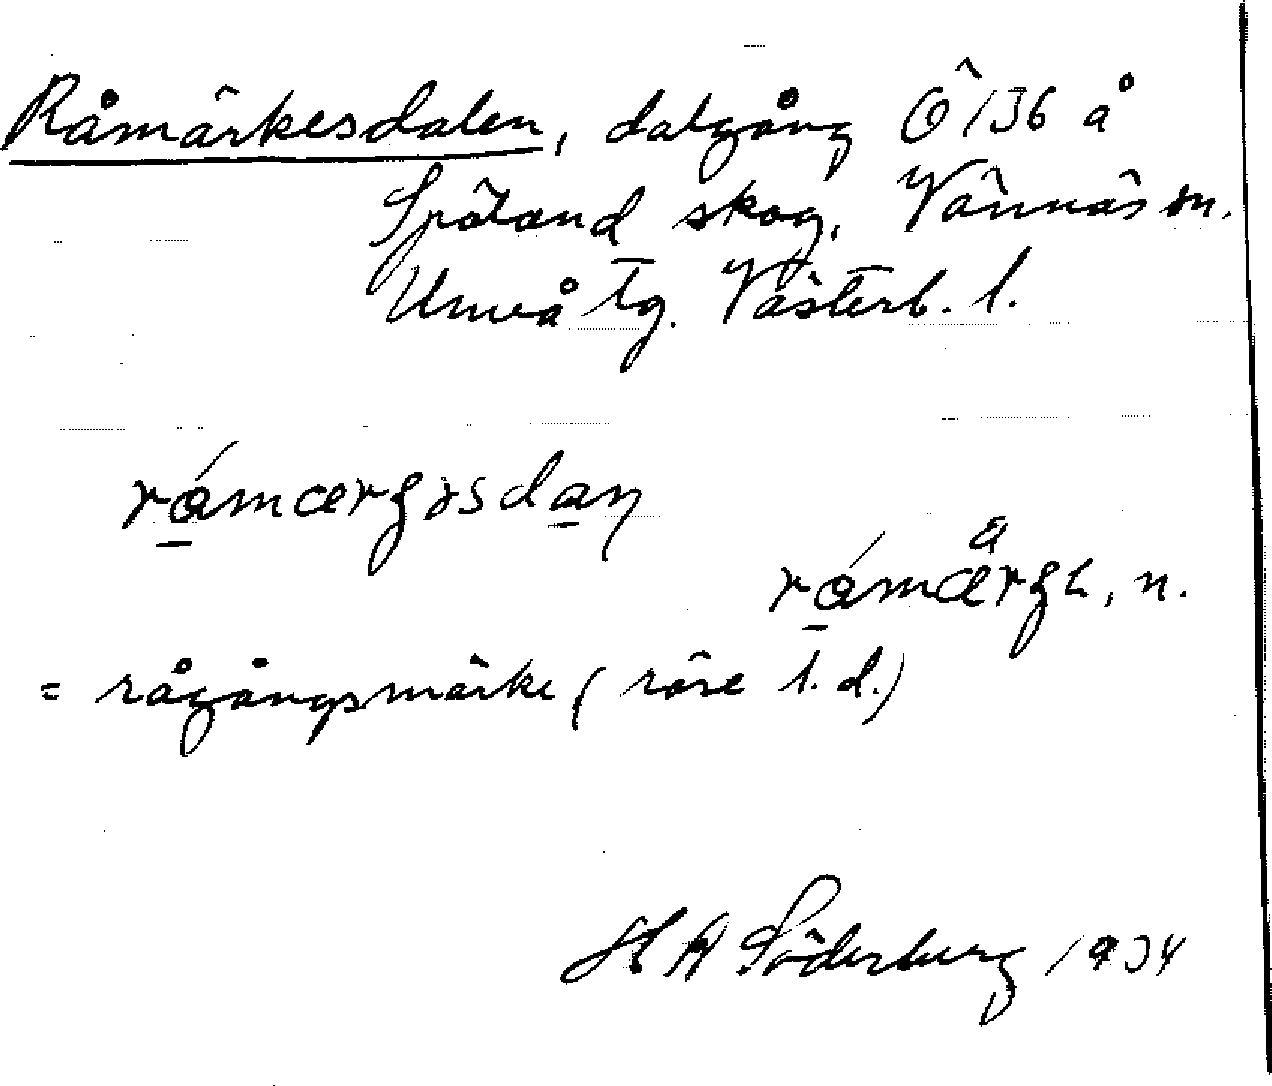 Råmärkesdalen, dalgång Ö 136 å
Spöland skog, Vännäs sn.
Umeå tg. Västerb. l.
= rågångsmärke (röse l. d.)
H A Söderberg 1934